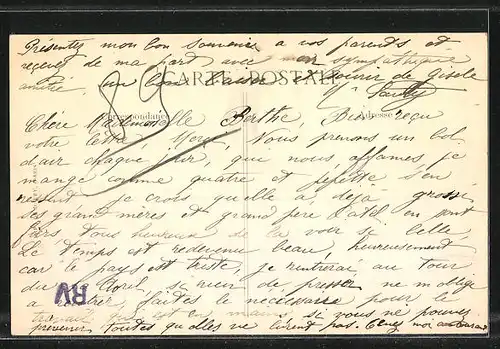 Présentez mon bon souvenir a vos parents et
recevez de ma part avec ma sympathique
amitié, un bon baiser et bonjour de Gisèle
CARTE POSTALE
Correspondance
Adresse
89
Chère Mademoiselle Berthe, Bien reçu
votre lettre, Merci, Nous prenons un bol
d'air chaque jour, que nous affames je
mange comme quatre et pepette s'en
ressent je crois qu'elle a déjà grossi
Ses grand mères et grand père en sont
fiers tous heureux de la voir si belle
Le temps est redevenu beau, heureusement
car le pays est triste, je rentrerai au tour
du Avril, si rien de pressé ne m'oblige
a rentrer, faites le nécessaire pour le
travail qui est en mains si vous ne pouvez
prévenir toutes qu'elles ne livrent pas.
RV